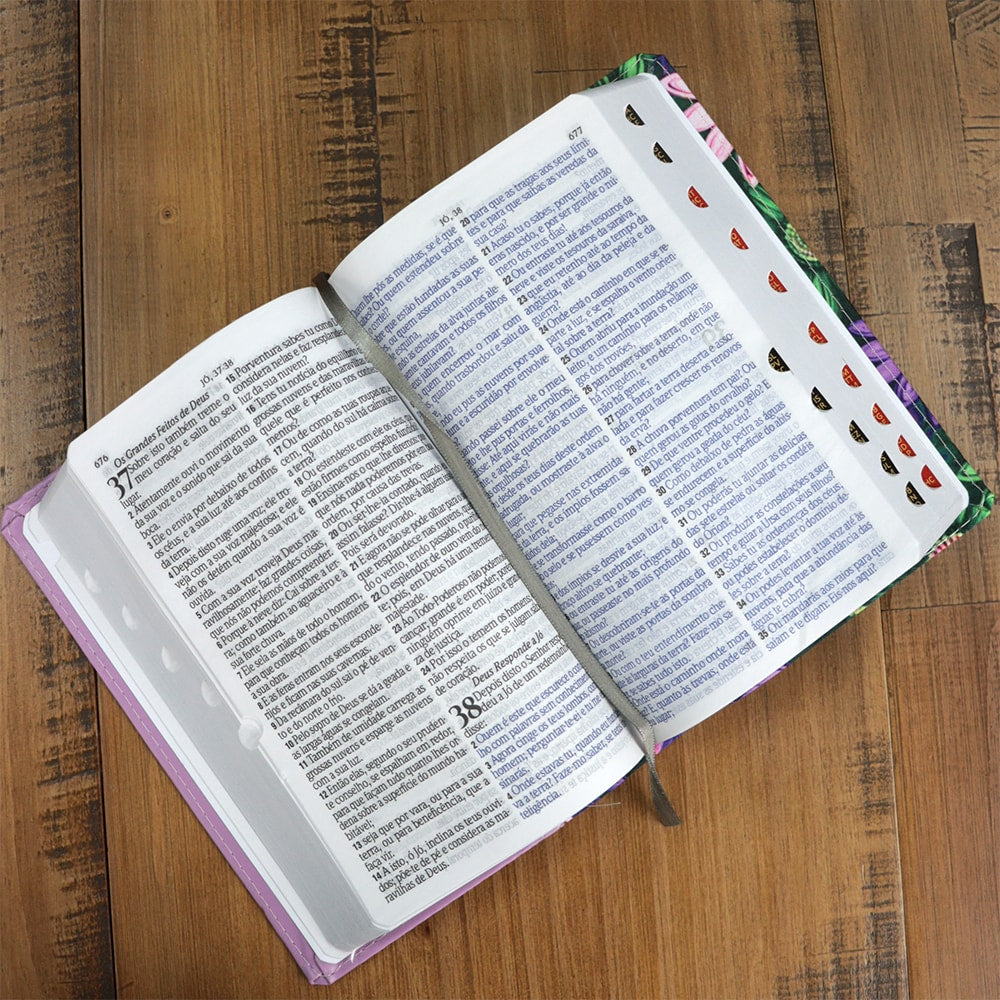 676
JÓ, 37-38
Os Grandes Feitos de Deus
37 Sobre isto também treme o
meu coração e salta do seu
lugar.
2 Atentamente ouvi o movimento
da sua voz e o sonido que sai da sua
boca.
3 Ele o envia por debaixo de todos
os céus, e a sua luz até aos confins
da terra.
4 Depois disto ruge uma voz, ele tro-
veja com a sua voz majestosa; e ele
não os detém quando a sua voz é
ouvida.
5 Com a sua voz troveja Deus ma-
ravilhosamente; faz grandes coisas
que nós não podemos compreender.
6 Porque à neve diz: Cai sobre a ter-
ra; como também ao aguaceiro e à
sua forte chuva.
7 Ele sela as mãos de todo o homem,
para que conheçam todos os homens
a sua obra.
8 E as feras entram nos seus esconde-
rijos e ficam nas suas cavernas.
9 Da recâmara do sul sai o pé de ven-
to e do norte o frio.
10 Pelo sopro de Deus se dá a geada e
as largas águas se congelam.
11 Também de umidade carrega as
grossas nuvens e esparge as nuvens
com a sua luz.
12 Então elas, segundo o seu pruden-
te conselho, se espalham em redor,
para que façam tudo quanto lhes or-
dena sobre a superfície do mundo ha-
bitável;
13 seja que por vara, ou para a sua
terra, ou para beneficência, que a
faça vir.
14 A isto, ó Jó, inclina os teus ouvi-
dos; põe-te de pé e considera as ma-
ravilhas de Deus.
15 Porventura sabes tu como
considera nelas e faz resplande
luz da sua nuvem?
16 Tens tu notícia do equilíbrio
grossas nuvens e das maravilhas
quele que é perfeito nos
mentos?
17 Ou de como as tuas roupas
cem, quando do sul há calma sobre
18 Ou estendeste com ele os céus
estão firmes como espelho fundido
19 Ensina-nos o que lhe diremos
que nós nada poderemos pôr em
ordem, por causa das trevas.
20 Ou ser-lhe-ia contado, quando
assim falasse? Dir-lhe-á alguém
Pois será devorado.
21 E agora não se pode olhar para
que resplandece nas nuvens,
do o vento, tendo passado, o
22 O esplendor de ouro vem do norte
pois, em Deus há uma tremenda
jestade.
23 Ao Todo-Poderoso não podemos
cançar; grande é em poder; para
ninguém oprime em juízo e grandeza
za de justiça.
24 Por isso o temem os homens
não respeita os que se julgam sábios
de coração.
Deus Responde a Jó
38 Depois disto o Senhor
deu a Jó de um redemoinho
disse:
2 Quem é este que escurece o conse-
lho com palavras sem conhecimento?
3 Agora cinge os teus lombos
homem; perguntar-te-ei e tu me
sinarás.
4 Onde estavas tu, quando eu
va a terra? Faze-mo saber, se tens
teligência.
JÓ, 38
677
lhe pôs as medidas, se é que
Ou quem estendeu sobre
estão fundadas as suas
quem assentou a sua pe-
as estrelas da alva juntas ale-
cantavam e todos os filhos
encerrou o mar com
do trasbordou e saiu da
eu pus as nuvens por sua
e a escuridão por envolve-
do passei sobre ele o meu
lhe pus portas e ferrolhos,
Até aqui virás e não mais
aqui se quebrarão as tuas
desde os teus dias deste ordem
ugada, ou mostraste à alva o
que pegasse nas extremida-
e os ímpios fossem sa-
transformasse como o barro
e se pusessem como ves-
dos ímpios se desvie a sua luz, e
se quebrante;
entraste tu até às origens do
passeaste no mais profundo
descobriram-se-te as portas da
viste as portas da sombra
com o teu entendimento che-
às larguras da terra? Faze-mo sa-
sabes tudo isto.
Onde está o caminho onde mora
E, quanto às trevas, onde está
lugar,
20 para que as tragas aos seus limi-
tes e para que saibas as veredas da
sua casa?
21 Acaso tu o sabes, porque já então
eras nascido, e por ser grande o nú-
mero dos teus dias!
22 Ou entraste tu até aos tesouros da
neve e viste os tesouros da saraiva,
23 que eu retenho até ao tempo da
angústia, até ao dia da peleja e da
guerra?
24 Onde está o caminho em que se re-
parte a luz, e se espalha o vento orien-
tal sobre a terra?
25 Quem abriu para a inundação um
leito e um caminho para os relâmpa-
gos dos trovões,
26 para chover sobre uma terra onde não
há ninguém e no deserto, em que
não há gente;
27 para fartar a terra deserta e asso-
lada e para fazer crescer os renovos
da erva?
28 A chuva porventura tem pai? Ou
quem gera as gotas do orvalho?
29 De que ventre procedeu o gelo? E
quem gerou a geada do céu?
30 Como debaixo de pedra as águas
se endurecem, e a superfície do abis-
mo se congela.
31 Ou poderás tu ajuntar as delícias
das sete estrelas ou soltar os cordéis
do Órion?
32 Ou produzir as constelações a seu
tempo e guiar a Ursa com seus filhos?
33 Sabes tu as ordenanças dos céus,
ou podes estabelecer o domínio deles
sobre a terra?
34 Ou podes levantar a tua voz até às
nuvens, para que a abundância das
águas te cubra?
35 Ou mandarás aos raios para que
saiam e te digam: Eis-nos aqui?